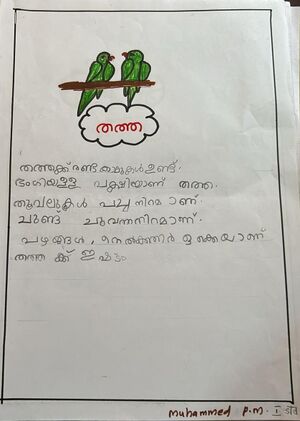 തത്ത
തത്തക്ക് രണ്ട് കാലുകൾ ഉണ്ട്.
ഭംഗിയുള്ള പക്ഷിയാണ് തത്ത.
തൂവലുകൾ പച്ച നിറമാണ്.
ചുണ്ട് ചുവന്നനിറമാണ്.
പഴങ്ങൾ, ഒക്കെയാണ്
തത്ത ക്ക് ഇഷ്ടം
muhammed P.M. I